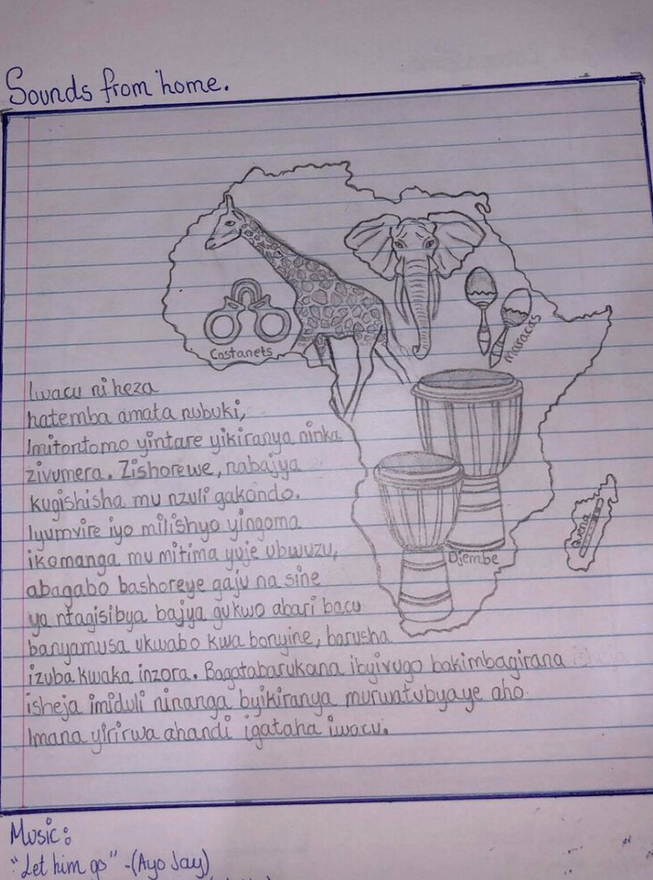 Sounds from home.
Castanets
Maracas
Iwacu ni heza
hatemba amata nubuki,
Imitontomo yintare yikiranya ninka
zivumera. Zishorewe, nabajya
kugishisha mu nzuli gakondo.
Iyumvire iyo milishyo yingoma
ikomanga mu mitima yuje ubwuzu,
abagabo bashoreye gaju na sine
ya ntagisibya bajya gukwo abari bacu
banyamusa ukwabo kwa bonyine, barusha
izuba kwaka inzora. Bagatabarukana ibyivugo bakimbagirana
isheja imiduli ninanga byikiranya murwatubyaye aho
Imana yirirwa ahandi igataha iwacu.
Djembe
Music:
"Let him go" -(Ayo Jay)